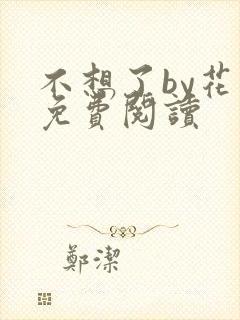 不想了by花
免費閱讀
鄭潔